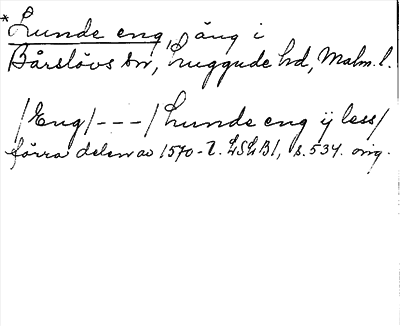 *Lunde eng, äng i
Bårslövs sn, Luggude hd, Malm. l.
/Eng/ - - - / Lunde eng ij less/
förra delen av 1570-t. LSLB1, s. 534. orig.